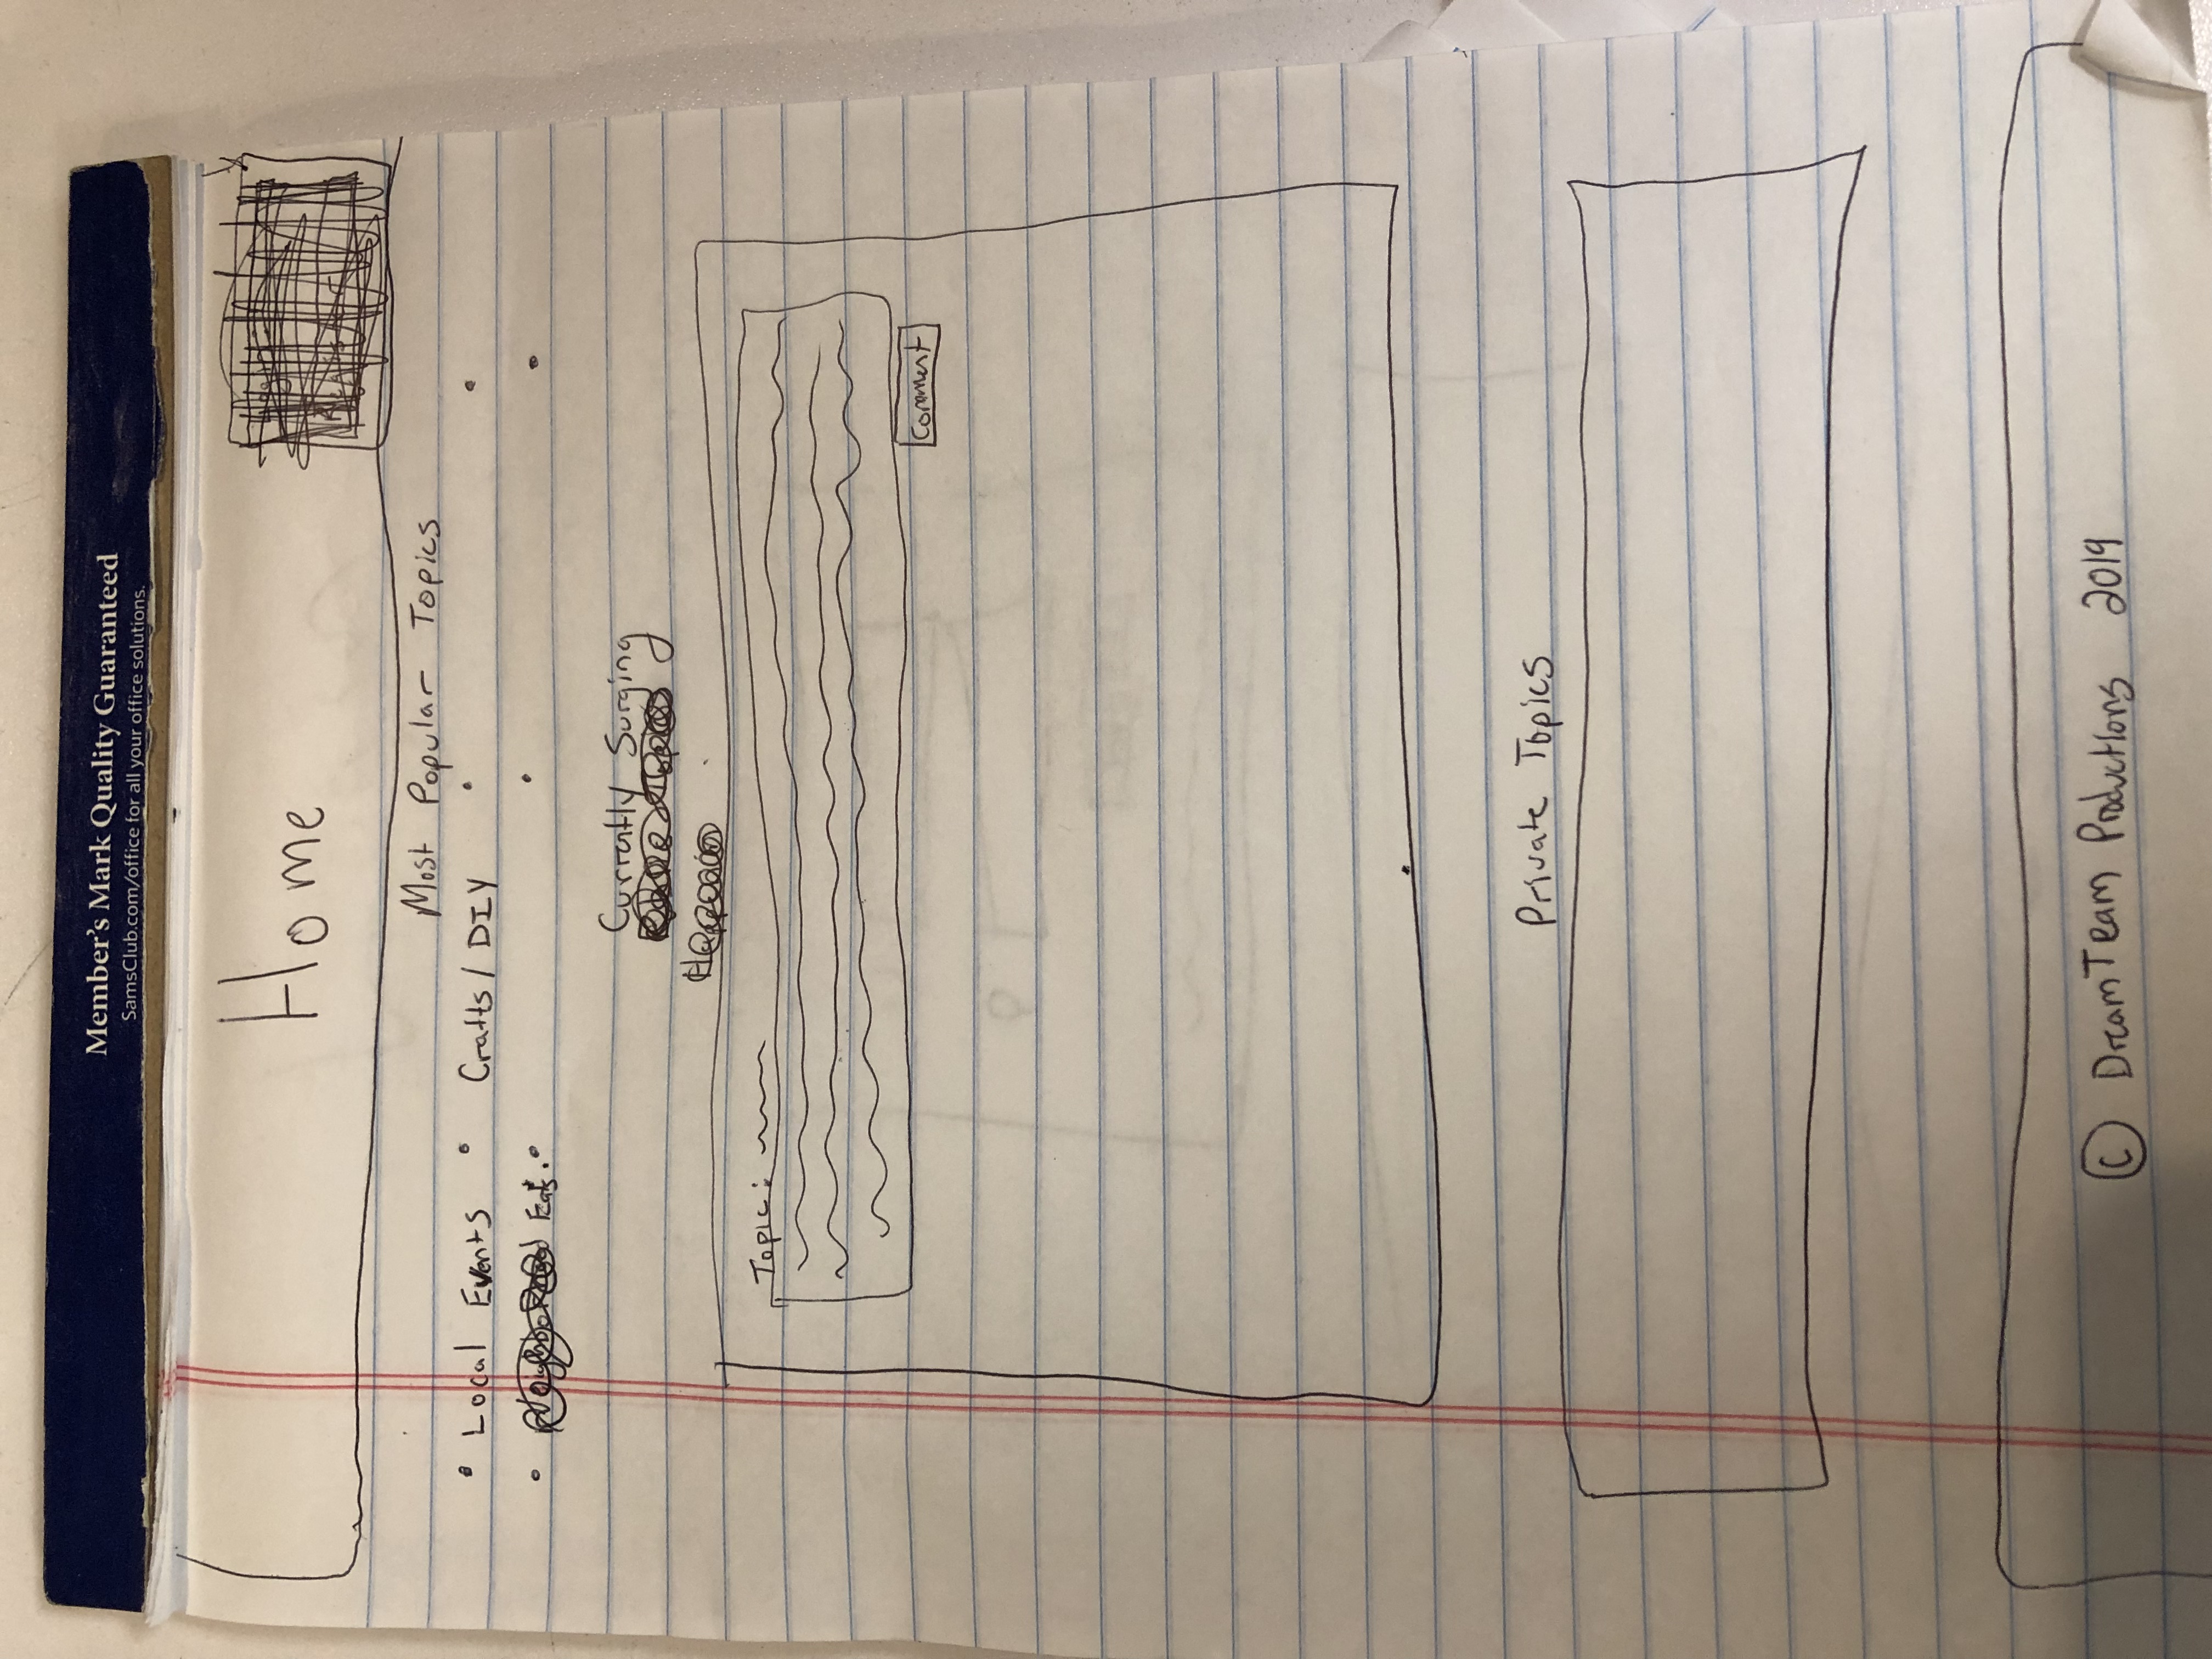 Member's Mark Quality Guaranteed
SamsClub.com/office for all your office solutions.
Home
Most Popular Topics
• Local Events • Crafts / DIY • •
• Eats. • • •
Currently Surging
Topic:
Comment
Private Topics
© DreamTeam Productions 2019